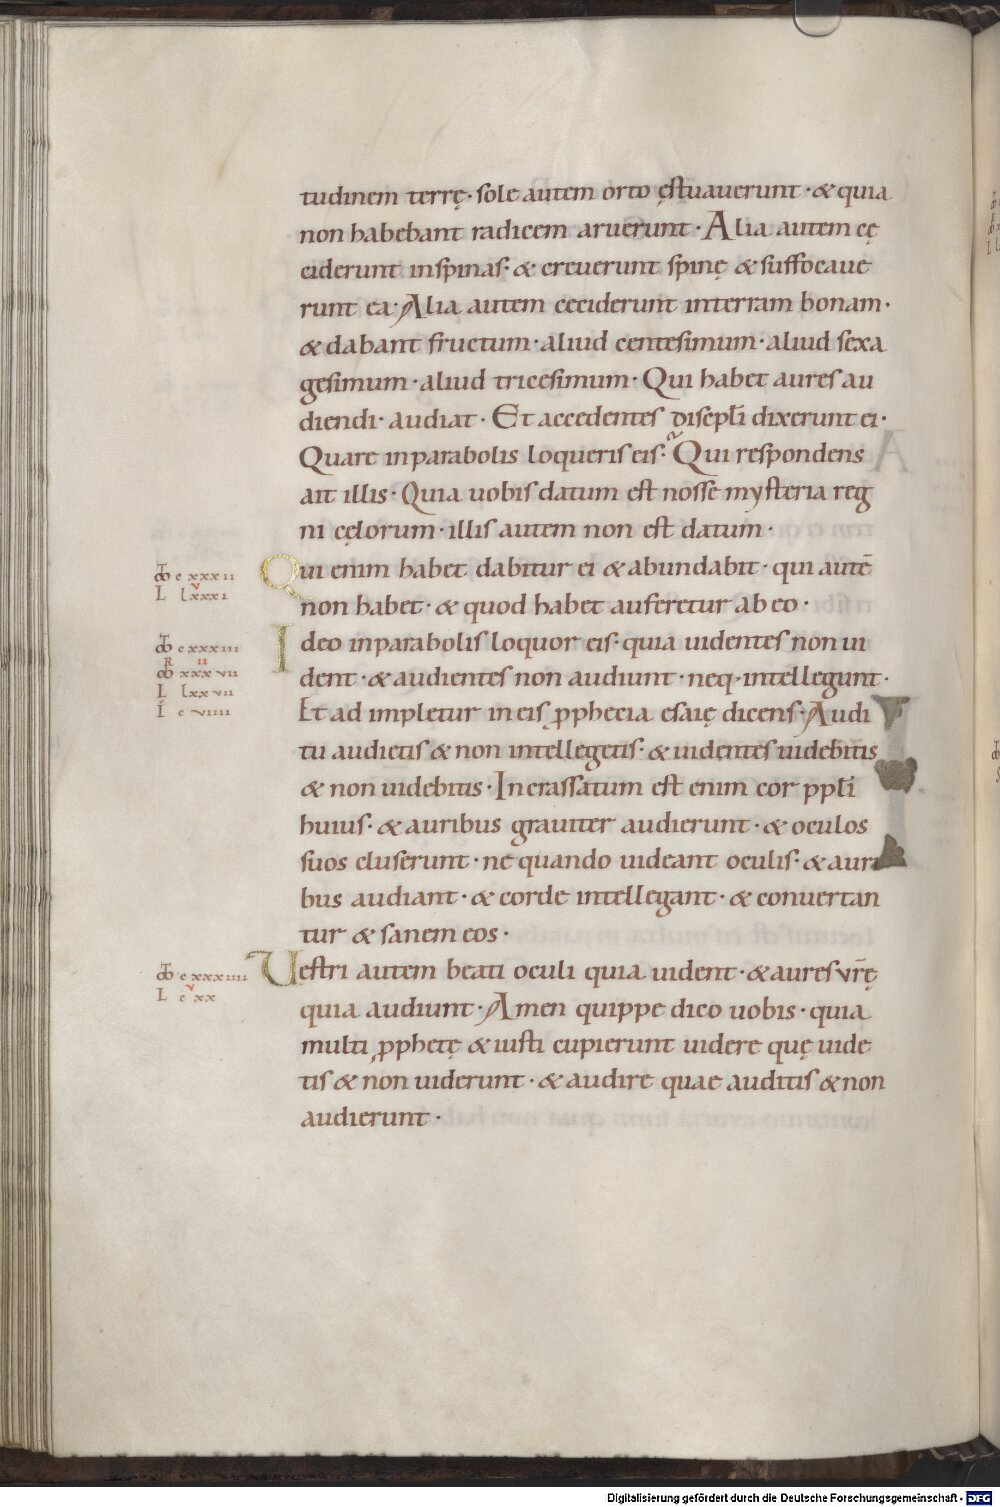 tudinem terrę· sole autem orto ęstuauerunt· & quia
non habebant radicem aruerunt· Alia autem cę
ciderunt inspinas· & creuerunt spinę & suffocaue
runt ea· Alia autem ceciderunt interram bonam·
& dabant fructum· aliud centesimum· aliud sexa
gesimum· aliud tricesimum· Qui habet aures au
diendi· audiat· Et accedentes discipli̅ dixerunt ei·
Quare inparabolis loqueris eis· Qui respondens
ait illis· Quia uobis datum est nosse mysteria reg
ni cęlorum· illis autem non est datum·
Qui enim habet dabitur ei & abundabit· qui aute̅
non habet· & quod habet auferetur ab eo·
Ideo inparabolis loquor eis· quia uidentes non ui
dent· & audientes non audiunt· neq· intellegunt·
Et ad impletur in eis ꝓphecia esaię dicens· Audi
tu audietis & non intellegetis· & uidentes uidebitis
& non uidebitis· Incrassatum est enim cor ppli̅
huius· & auribus grauiter audierunt· & oculos
suos cluserunt· ne quando uideant oculis· & auri
bus audiant· & corde intellegant· & conuertan
tur & sanem eos·
Uestri autem beati oculi quia uident· & aures vr̅ę
quia audiunt· Amen quippe dico uobis· quia
multi ꝓphetę & iusti cupierunt uidere quę uide
tis & non uiderunt· & audire quae auditis & non
audierunt·
c xxxii
L lxxxi
c xxxiii
R ii
xxx vii
L lxx vii
I c viiii
c xxxiiii
L c xx
Digitalisierung gefördert durch die Deutsche Forschungsgemeinschaft - DFG